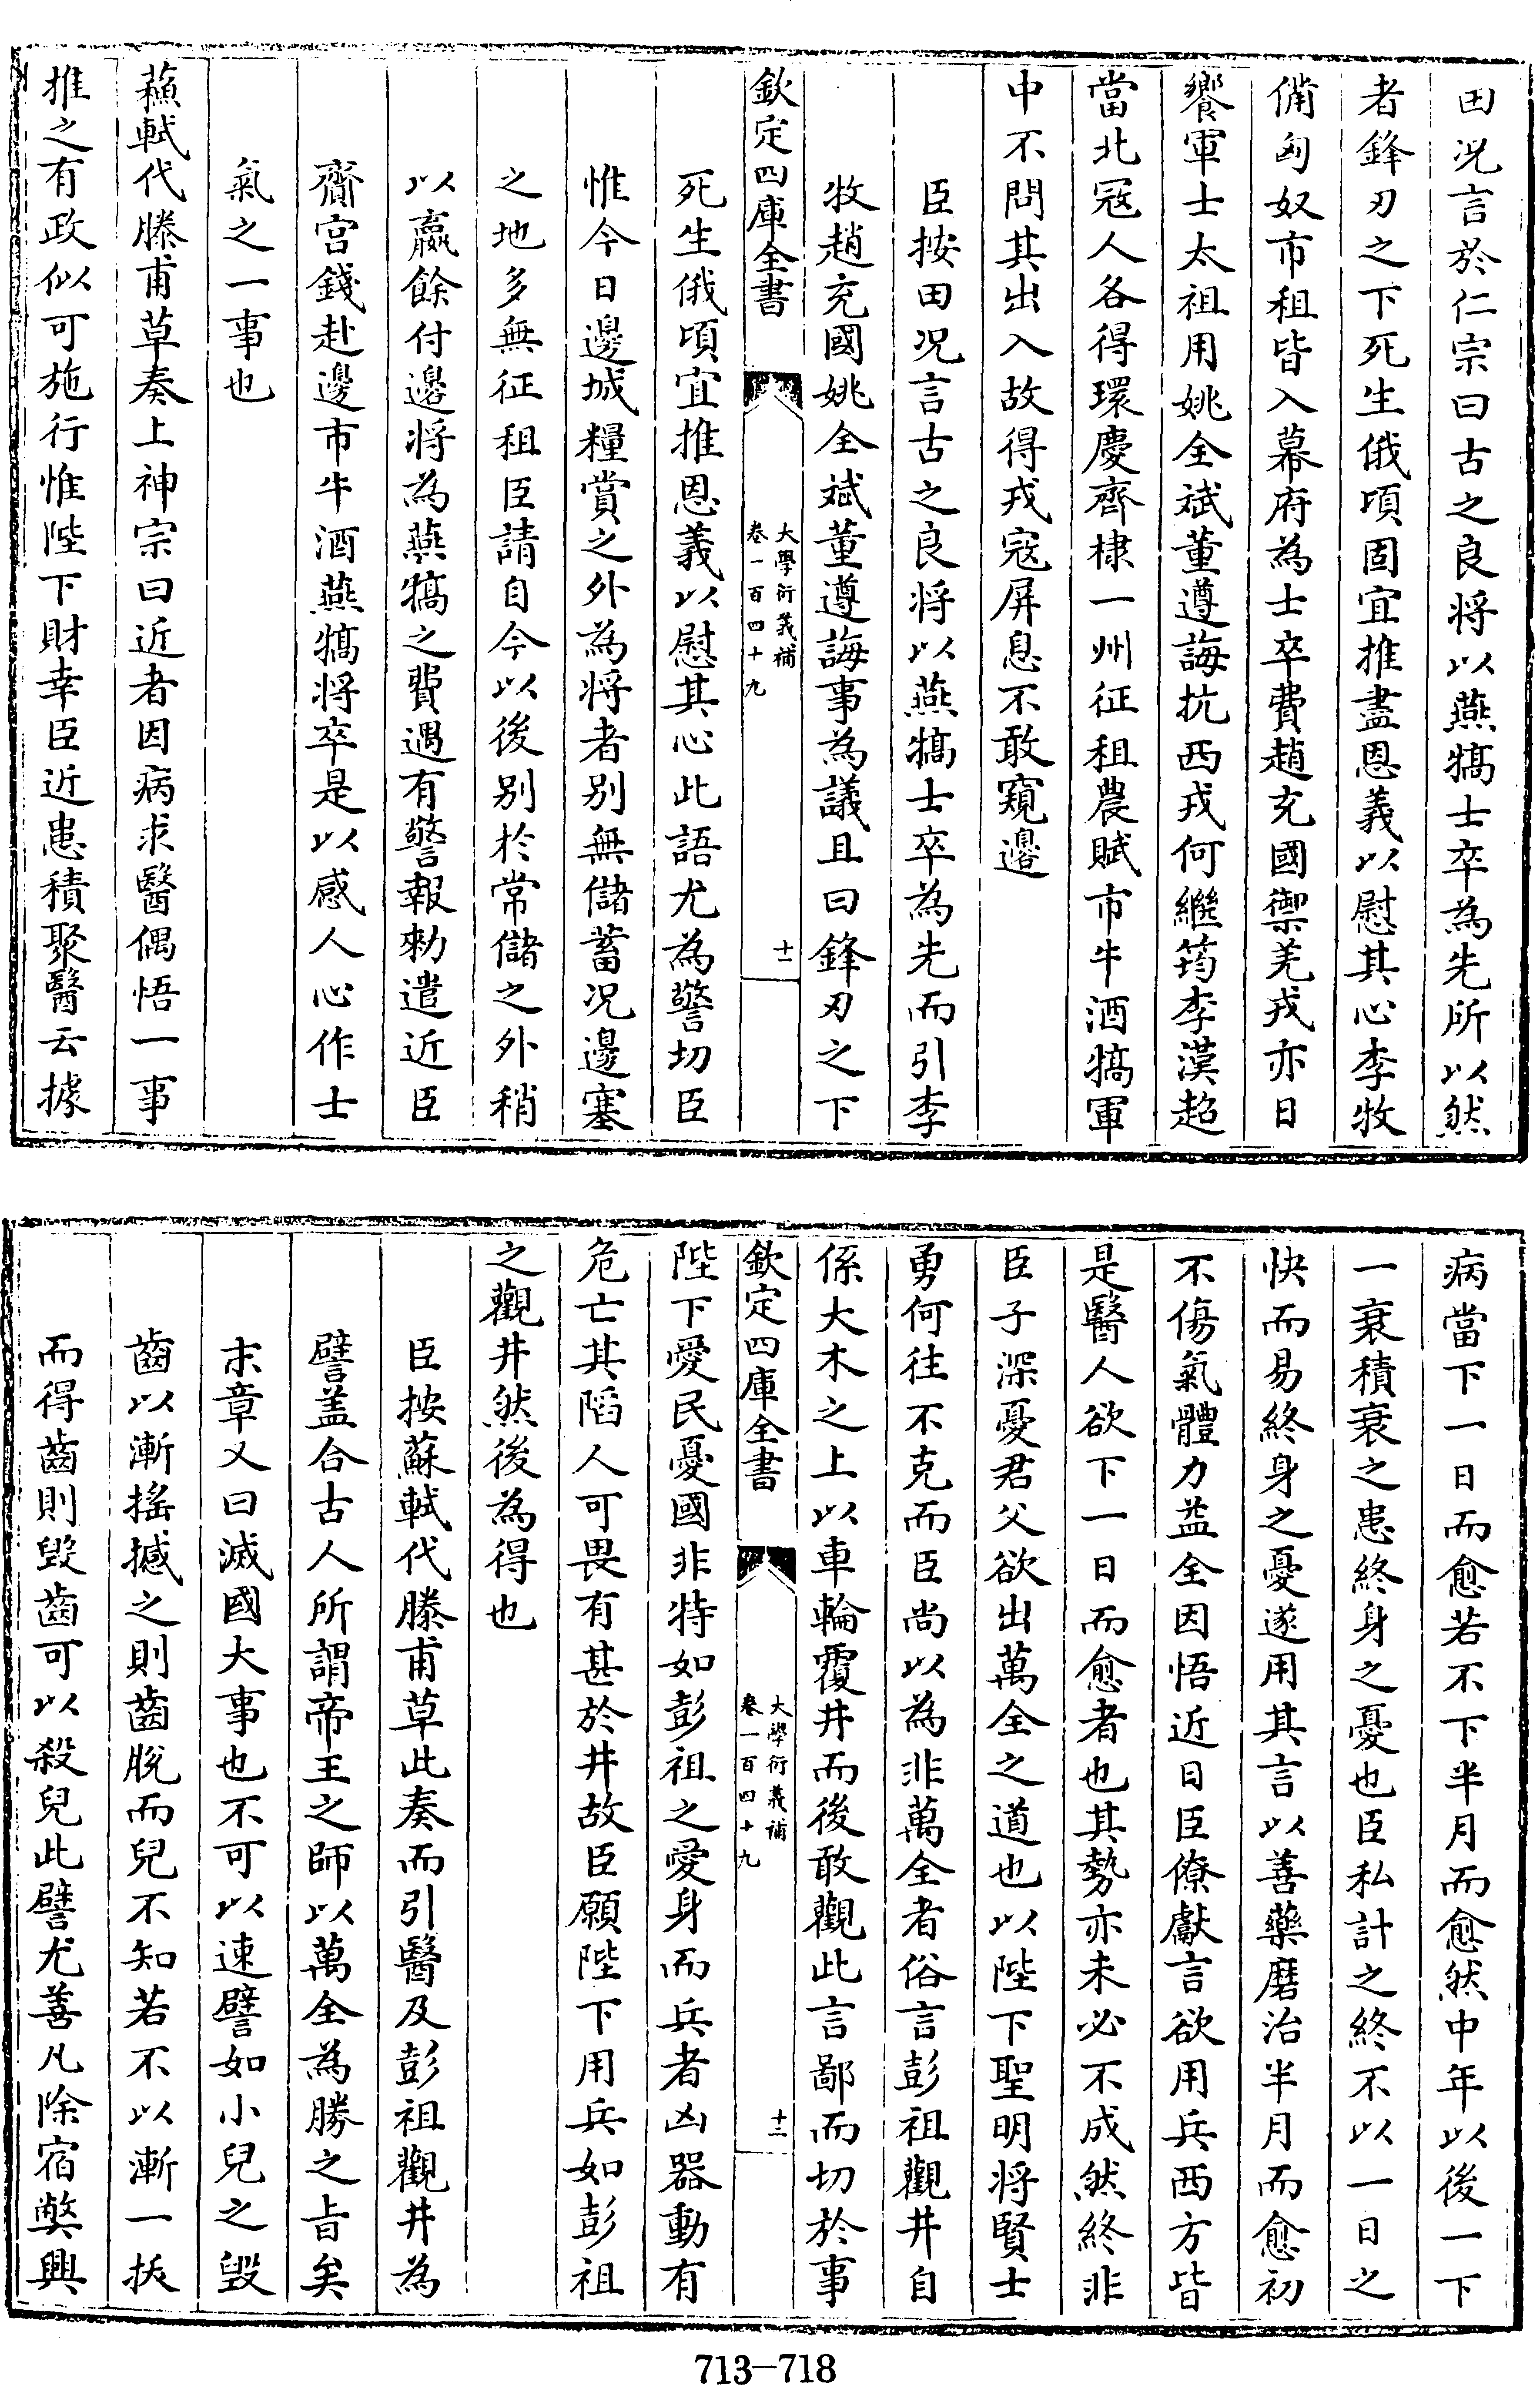 田況言於仁宗曰古之良將以燕犒士卒為先所以然
者鋒刃之下死生俄頃固宜推盡恩義以慰其心李牧
備匈奴市租皆入幕府為士卒費趙充國禦羌戎亦日
饗軍士太祖用姚全斌董遵誨抗西戎何繼筠李漢超
當北寇人各得環慶齊棣一州征租農賦市牛酒犒軍
中不問其出入故得戎寇屏息不敢窺邊
臣按田況言古之良將以燕犒士卒為先而引李
牧趙充國姚全斌董遵誨事為議且曰鋒刃之下
欽定四庫全書
大學衍義補
卷一百四十九
十一
死生俄頃宜推恩義以慰其心此語尤為警切臣
惟今日邊城糧賞之外為將者別無儲蓄況邊塞
之地多無征租臣請自今以後別於常儲之外稍
以羸餘付邊將為燕犒之費遇有警報勑遣近臣
齎官錢赴邊市牛酒燕犒將卒是以感人心作士
氣之一事也
蘓軾代滕甫草奏上神宗曰近者因病求醫偶悟一事
推之有政似可施行惟陛下財幸臣近患積聚醫云據
病當下一日而愈若不下半月而愈然中年以後一下
一衰積衰之患終身之憂也臣私計之終不以一日之
快而易終身之憂遂用其言以善藥磨治半月而愈初
不傷氣體力益全因悟近日臣僚獻言欲用兵西方皆
是醫人欲下一日而愈者也其勢亦未必不成然終非
臣子深憂君父欲出萬全之道也以陛下聖明將賢士
勇何往不克而臣尚以為非萬全者俗言彭祖觀井自
係大木之上以車輪覆井而後敢觀此言鄙而切於事
欽定四庫全書
大學衍義補
卷一百四十九
十二
陛下愛民憂國非特如彭祖之愛身而兵者凶器動有
危亡其陷人可畏有甚於井故臣願陛下用兵如彭祖
之觀井然後為得也
臣按蘇軾代滕甫草此奏而引醫及彭祖觀井為
譬盖合古人所謂帝王之師以萬全為勝之旨矣
末章又曰滅國大事也不可以速譬如小兒之毀
齒以漸搖撼之則齒脫而兒不知若不以漸一拔
而得齒則毀齒可以殺兒此譬尤善凡除宿弊興
713-718